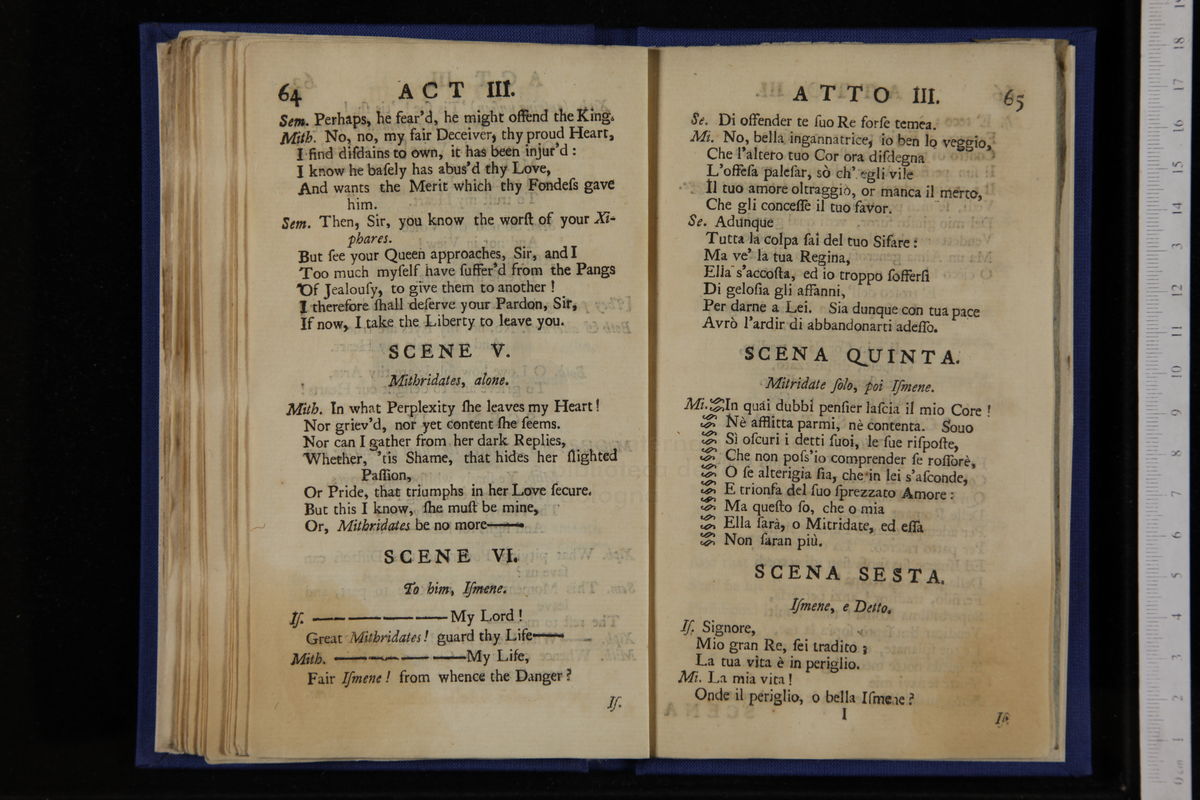 64
ACT III.
Sem. Perhaps, he fear'd, he might offend the King.
Mith. No, no, my fair Deceiver, thy proud Heart,
I find diſdains to own, it has been injur'd :
I know he baſely has abus'd thy Love,
And wants the Merit which thy Fondeſs gave
him.
Sem. Then, Sir, you know the worſt of your Xi-
phares.
But ſee your Queen approaches, Sir, and I
Too much myſelf have ſuffer'd from the Pangs
Of Jealouſy, to give them to another !
I therefore ſhall deſerve your Pardon, Sir,
If now, I take the Liberty to leave you.
SCENE V.
Mithridates, alone.
Mith. In what Perplexity ſhe leaves my Heart !
Nor griev'd, nor yet content ſhe ſeems.
Nor can I gather from her dark Replies,
Whether, 'tis Shame, that hides her ſlighted
Paſſion,
Or Pride, that triumphs in her Love ſecure.
But this I know, ſhe muſt be mine,
Or, Mithridates be no more——
SCENE VI.
To him, Iſmene.
Iſ. — — — — — My Lord !
Great Mithridates ! guard thy Life——
Mith. — — — — —My Life,
Fair Iſmene ! from whence the Danger ?
Iſ.
ATTO III.
65
Se. Di offender te ſuo Re forſe temea.
Mi. No, bella ingannatrice, io ben lo veggio,
Che l'altero tuo Cor ora diſdegna
L'offeſa paleſar, sò ch' egli vile
Il tuo amore oltraggiò, or manca il merto,
Che gli conceſſe il tuo favor.
Se. Adunque
Tutta la colpa ſai del tuo Sifare :
Ma ve' la tua Regina,
Ella s'accoſta, ed io troppo ſofferſi
Di geloſia gli affanni,
Per darne a Lei. Sia dunque con tua pace
Avrò l'ardir di abbandonarti adeſſo.
SCENA QUINTA.
Mitridate ſolo, poi Iſmene.
Mi. In quai dubbi penſier laſcia il mio Core !
Nè afflitta parmi, nè contenta. Souo
Sì oſcuri i detti ſuoi, le ſue riſpoſte,
Che non poſs'io comprender ſe roſſorè,
O ſe alterigia ſia, che in lei s'aſconde,
E trionfa del ſuo ſprezzato Amore :
Ma queſto ſo, che o mia
Ella ſarà, o Mitridate, ed eſſa
Non ſaran più.
SCENA SESTA.
Iſmene, e Detto.
Iſ. Signore,
Mio gran Re, ſei tradito ;
La tua vita è in periglio.
Mi. La mia vita !
Onde il periglio, o bella Iſmene ?
I
Iſ.